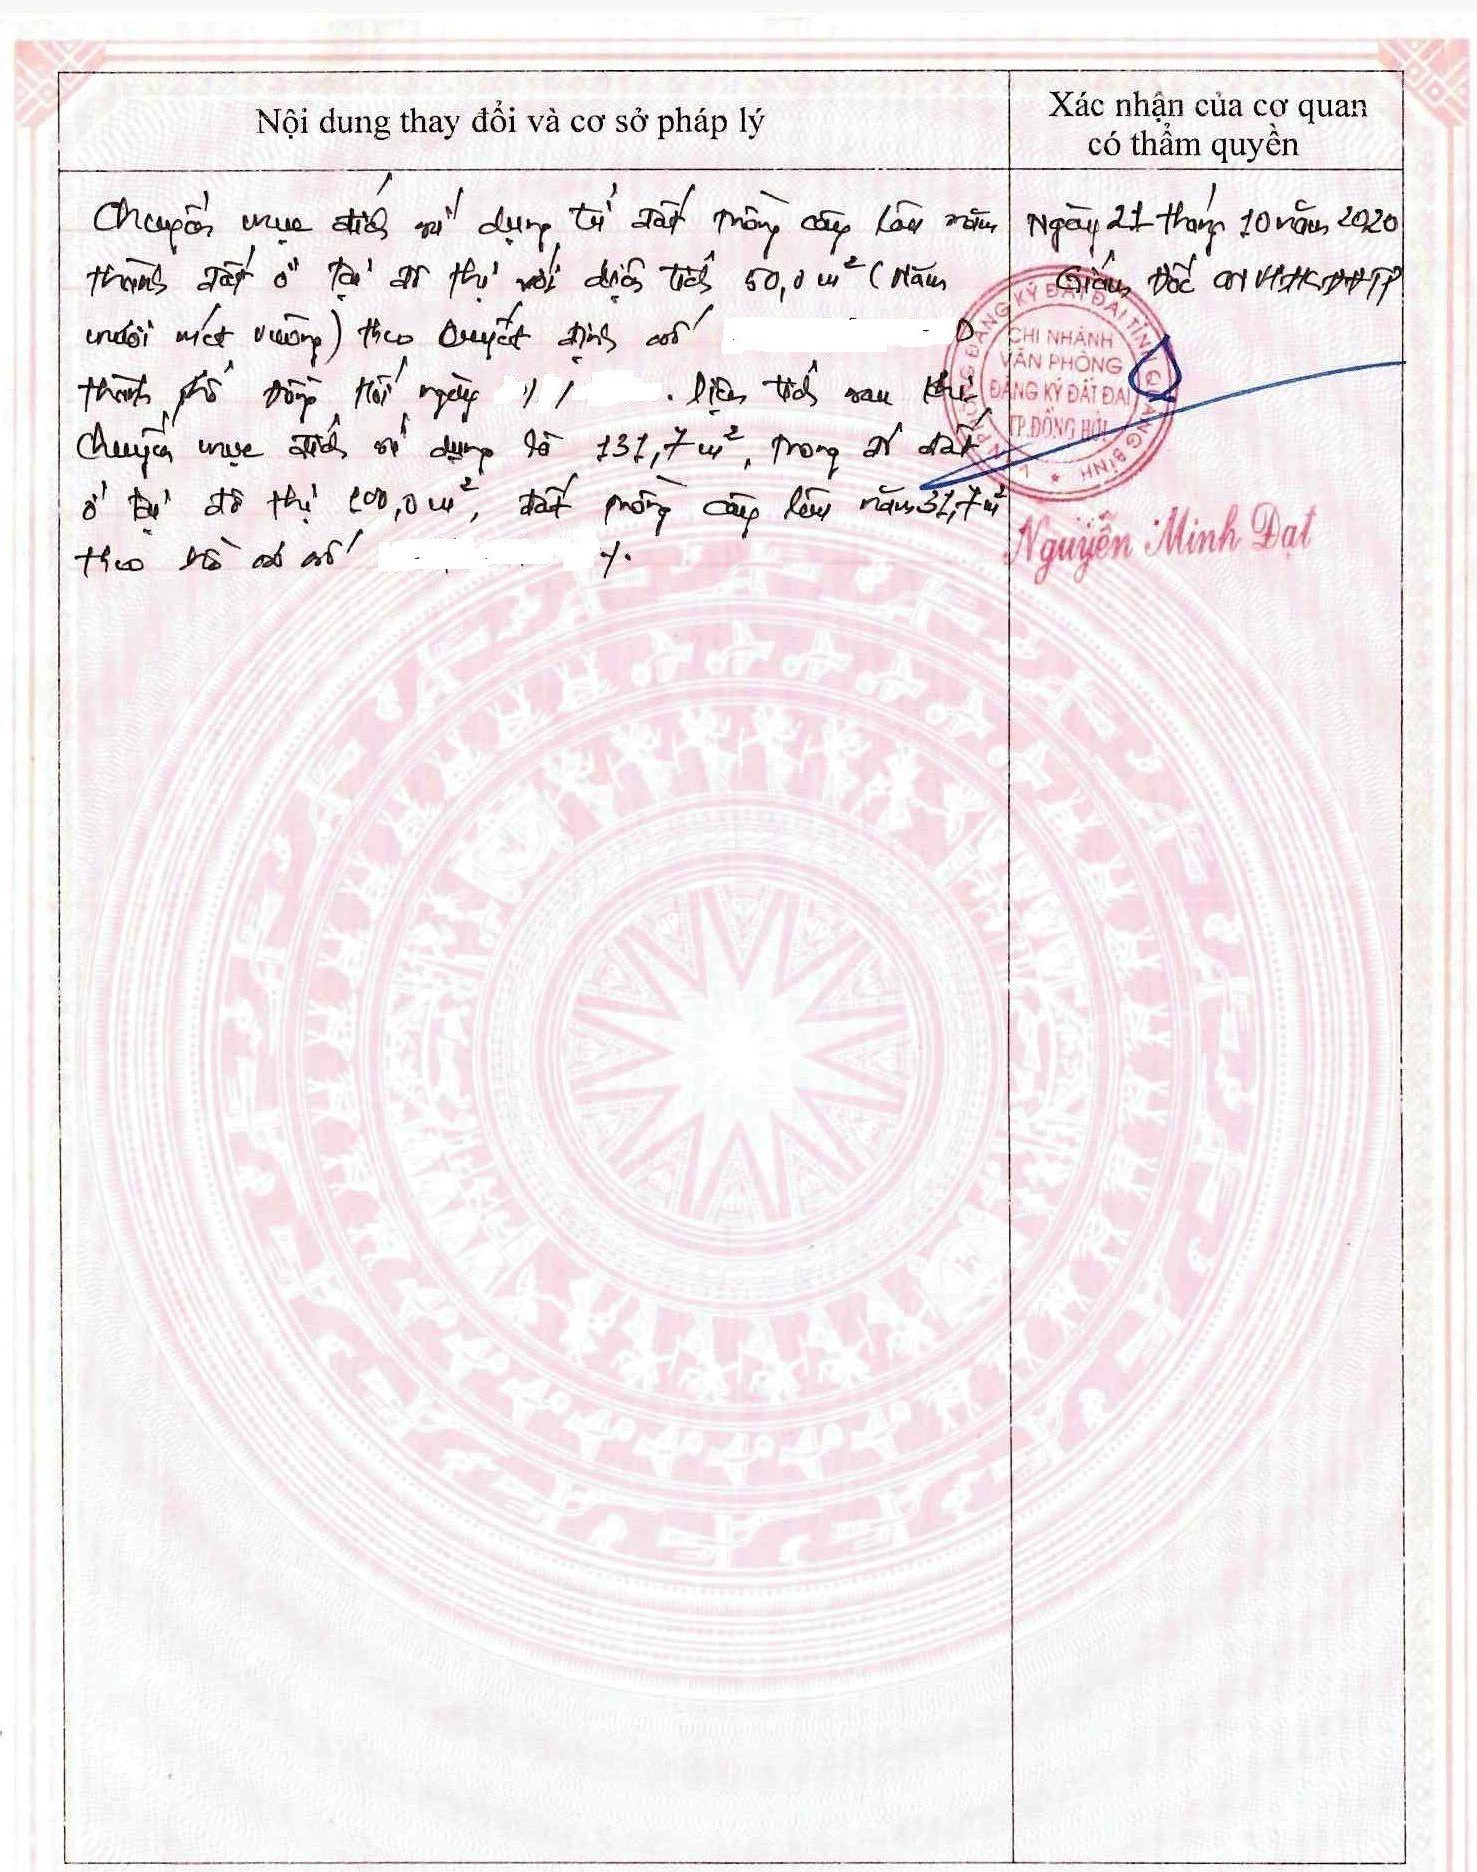 Nội dung thay đổi và cơ sở pháp lý
Xác nhận của cơ quan
có thẩm quyền
Chuyển mục đích sử dụng từ đất trồng cây lâu năm
thành đất ở tại đô thị với diện tích 50,0 m² (Năm
mươi mét vuông) theo Quyết định số
thành phố Đồng Hới ngày / / . Diện tích sau khi
chuyển mục đích sử dụng là 131,7 m², trong đó đất
ở tại đô thị 100,0 m², đất trồng cây lâu năm 31,7 m²
theo hồ sơ số /.
Ngày 21 tháng 10 năm 2020
Giám Đốc CN VPĐKĐĐTP
VĂN PHÒNG ĐĂNG KÝ ĐẤT ĐAI TỈNH QUẢNG BÌNH
CHI NHÁNH
VĂN PHÒNG
ĐĂNG KÝ ĐẤT ĐAI
TP.ĐỒNG HỚI
Nguyễn Minh Đạt